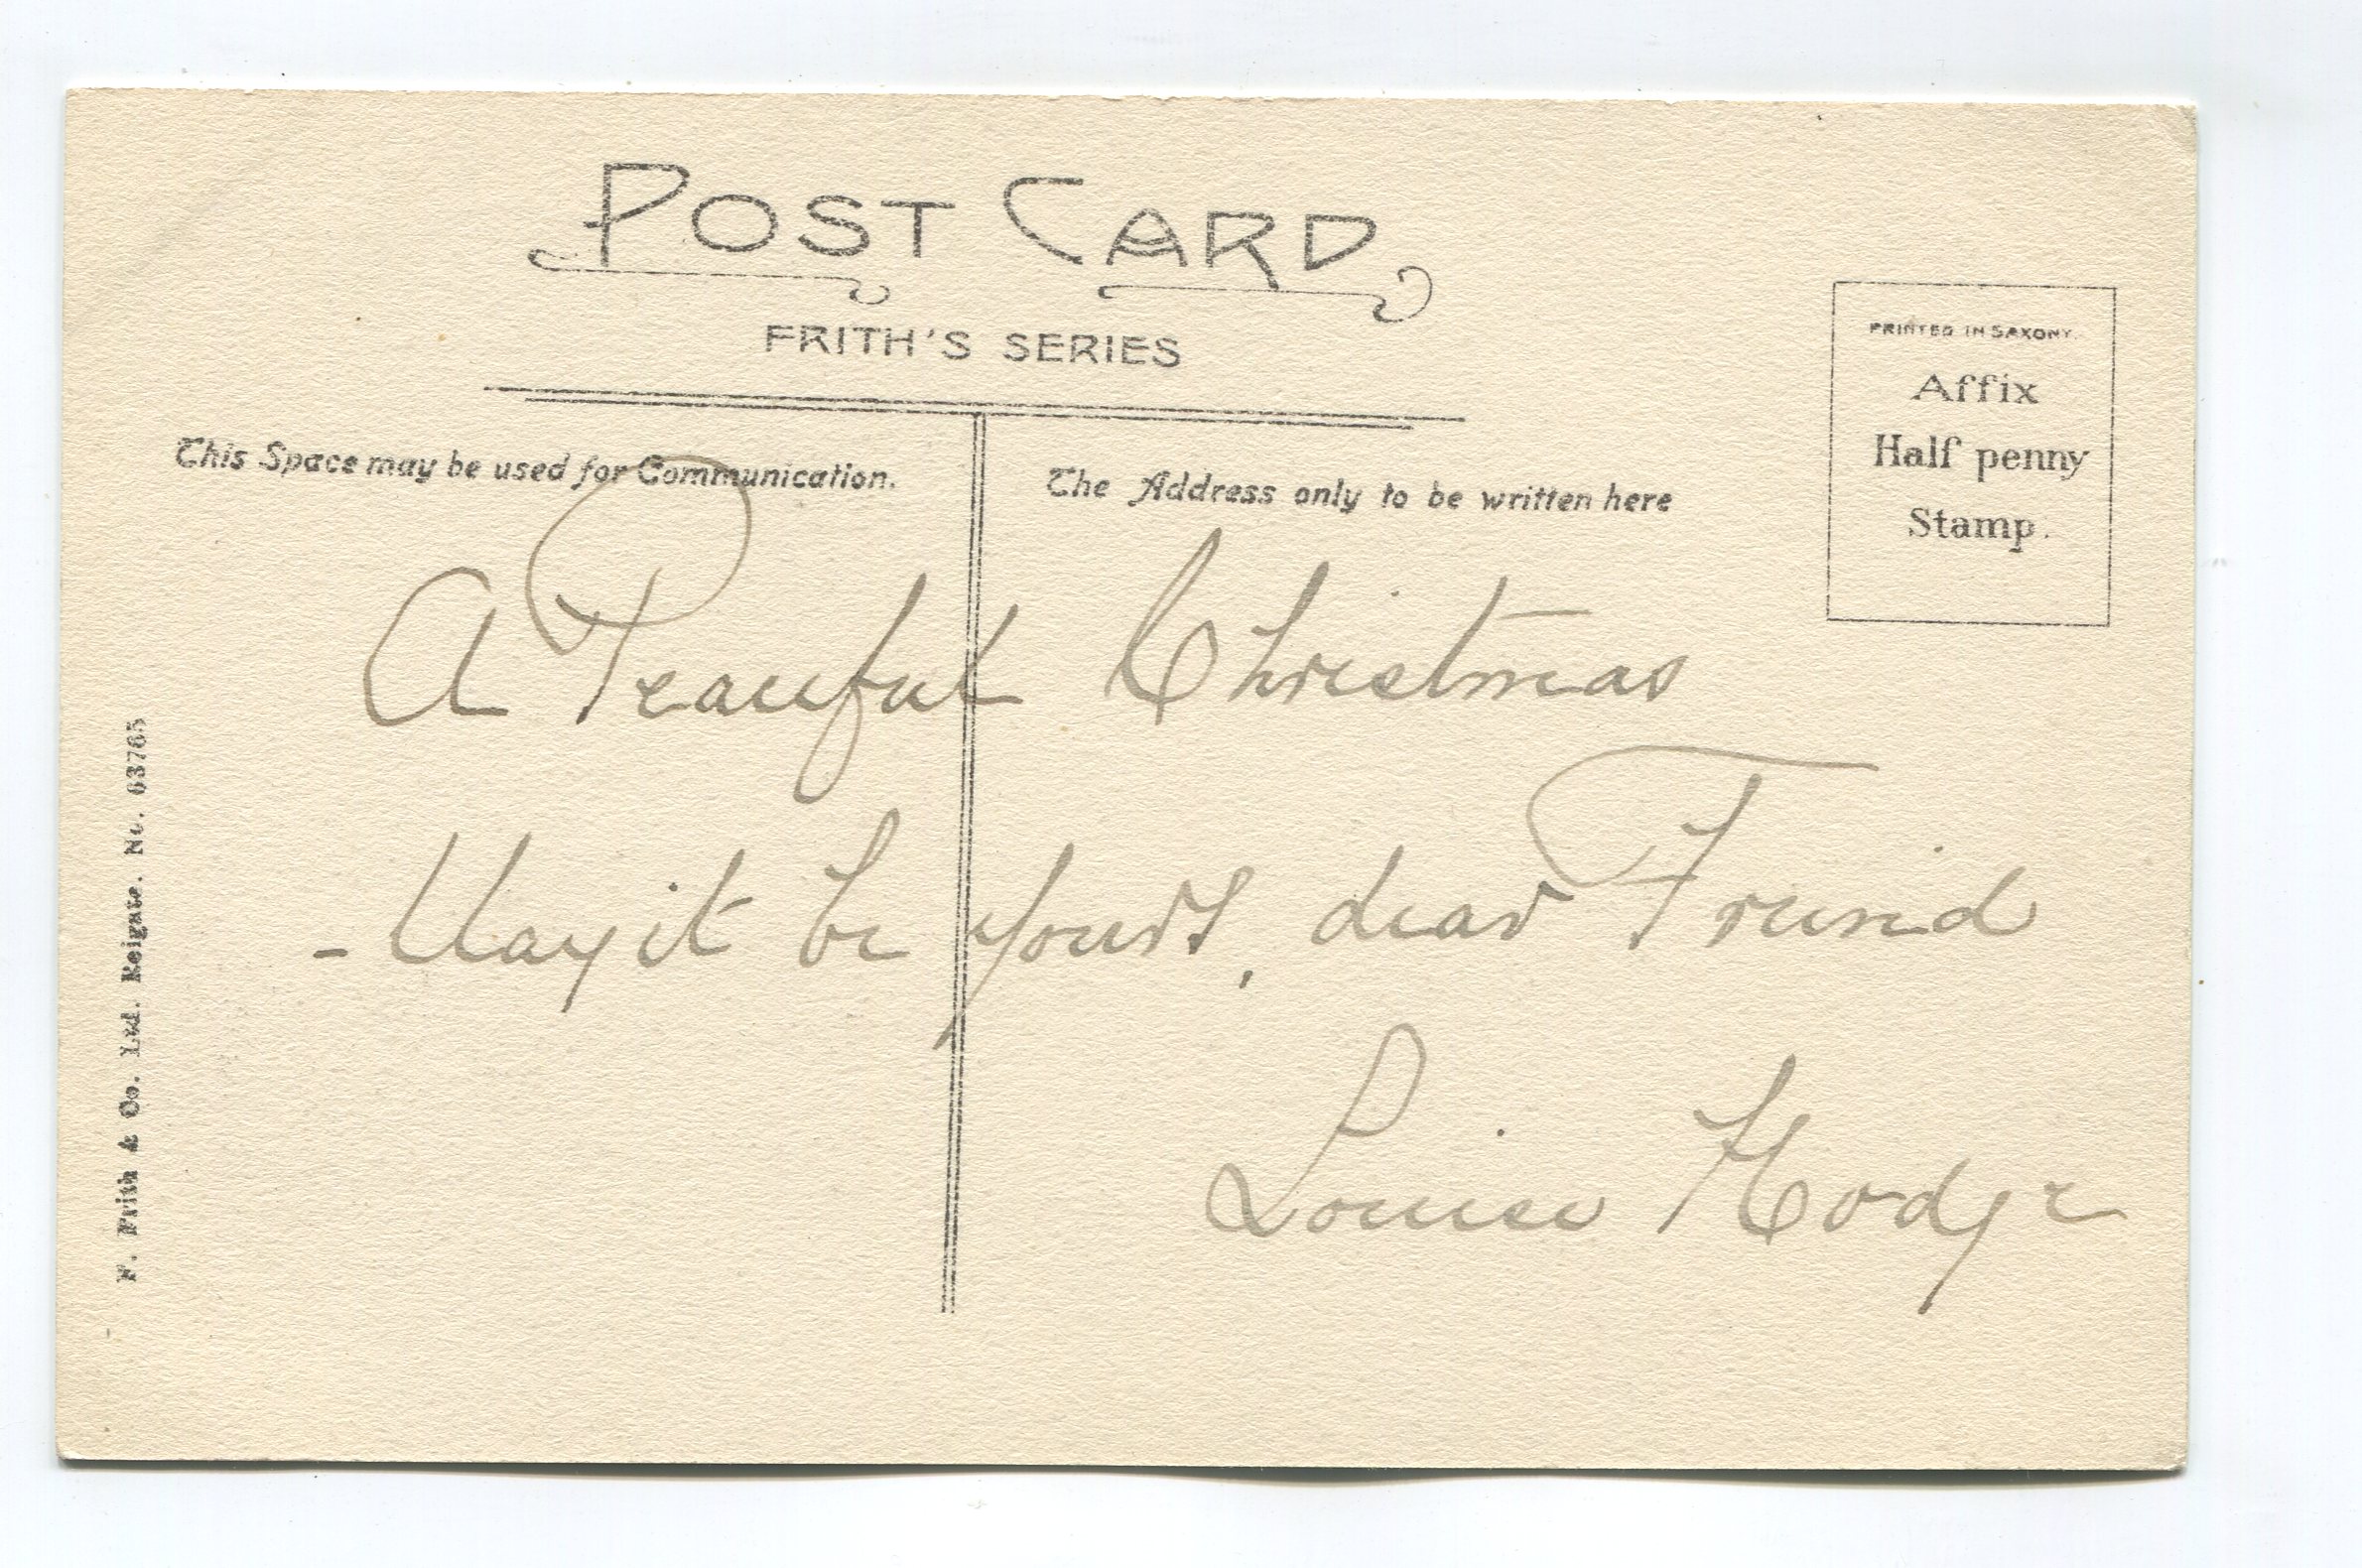 POST CARD
FRITH'S SERIES
This Space may be used for Communication.
The Address only to be written here
PRINTED IN SAXONY.
Affix
Half penny
Stamp.
A Peaceful Christmas
- May it be yours, dear Friend
Louise Hodge
F. Frith & Co. Ltd. Reigate. No. 63765